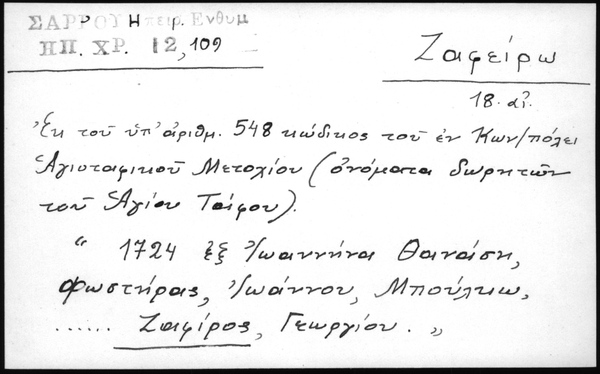 ΣΑΡΡΟΥ Ηπειρ. Ενθυμ
ΗΠ. ΧΡ. 12, 109
Ζαφείρω
18. αἰ.
Ἐκ τοῦ ὑπ' ἀριθμ. 548 κώδικος τοῦ ἐν Κων/πόλει
Ἁγιοταφικοῦ Μετοχίου (ὀνόματα δωρητῶν
τοῦ Ἁγίου Τάφου).
" 1724 ἐξ Ἰωαννήνα Θανάση,
Φωστήρας, Ἰωάννου, Μπούλκω,
...... Ζαφίρος, Γεωργίου. "